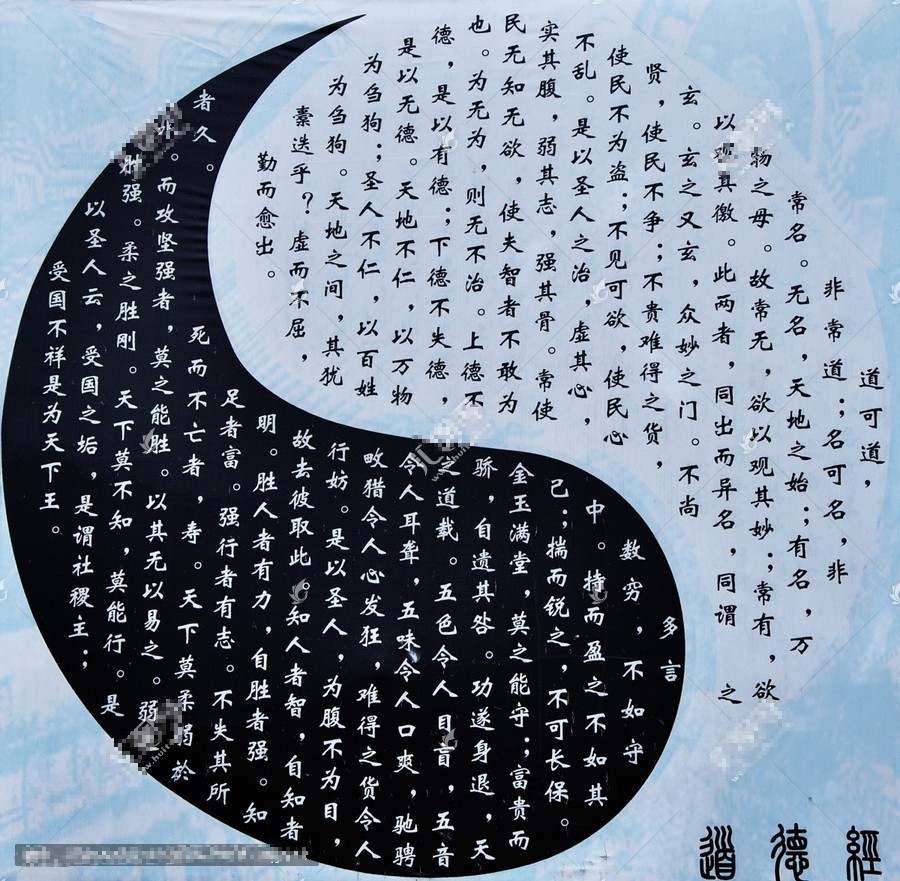 道可道，
非常道；名可名，非
常名。无名，天地之始；有名，万
物之母。故常无，欲以观其妙；常有，欲
以观其徼。此两者，同出而异名，同谓 之
玄。玄之又玄，众妙之门。不尚
贤，使民不争；不贵难得之货，
使民不为盗；不见可欲，使民心
不乱。是以圣人之治，虚其心，
实其腹，弱其志，强其骨。常使
民无知无欲，使夫智者不敢为
也。为无为，则无不治。上德不
德，是以有德；下德不失德，
是以无德。天地不仁，以万物
为刍狗；圣人不仁，以百姓
为刍狗。天地之间，其犹
橐迭乎？虚而不屈，
勤而愈出。
多言
数穷，不如守
中。持而盈之不如其
己；揣而锐之，不可长保。
金玉满堂，莫之能守；富贵而
骄，自遗其咎。功遂身退，天
之道载。五色令人目盲，五音
令人耳聋，五味令人口爽，驰骋
畋猎令人心发狂，难得之货令人
行妨。是以圣人，为腹不为目，
故去彼取此。知人者智，自知者
明。胜人者有力，自胜者强。知
足者富。强行者有志。不失其所
者久。死而不亡者，寿。天下莫柔弱於
。而攻坚强者，莫之能胜。以其无以易之。弱
胜强。柔之胜刚。天下莫不知，莫能行。是
以圣人云，受国之垢，是谓社稷主；
受国不祥是为天下王。
道德經